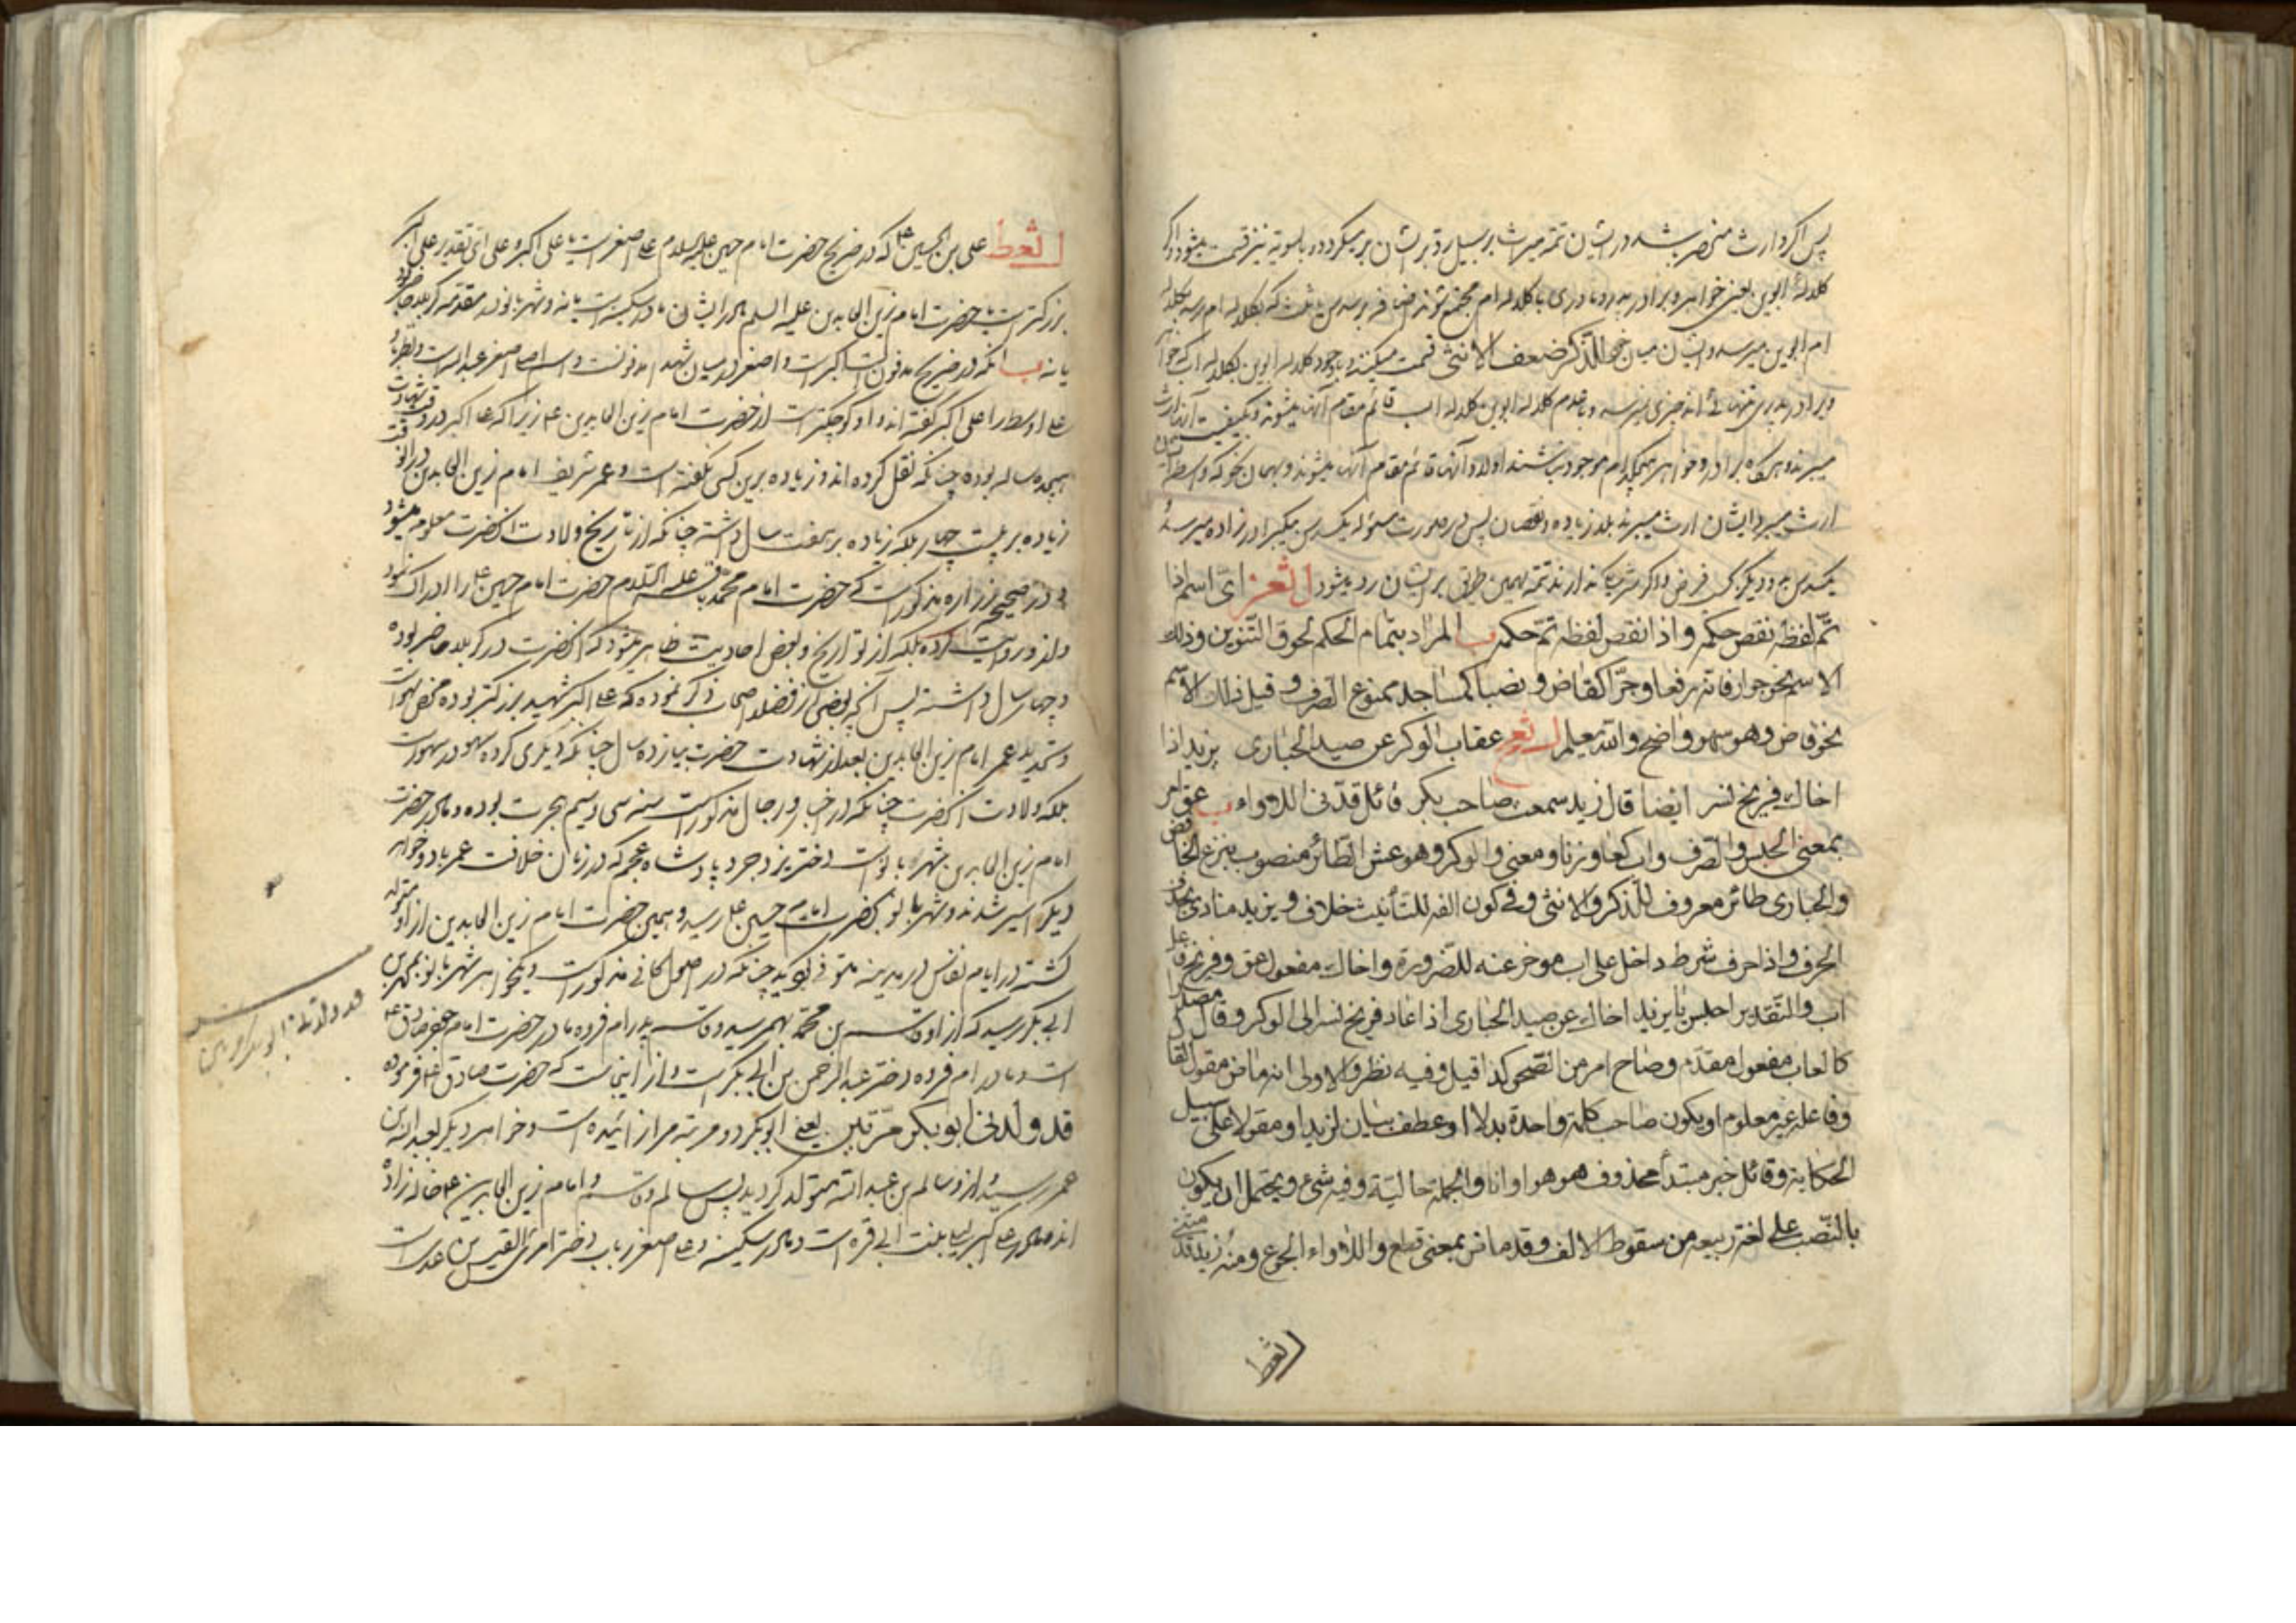 پس اگر وارث منحصر باشد در ایشان تتمه میراث بر سبیل رد بر ایشان بر میگردد و بالسویه نیز قسمت میشود و اگر
کلاله ابوین یعنی خواهر و برادر پدر و مادری با کلاله ام مجتمع شوند
ام ابوین میرسد و ایشان میان خود للذکر ضعف الانثی قسمت میکنند و با وجود کلاله ابوین بکلاله اب که خواهر
و برادر پدری تنهائی اند چیزی نمیرسد و با عدم کلاله ابوین کلاله اب قائم مقام آنها میشوند و بکیفیت آنها ارث
میبرند و هرگاه برادر و خواهر هیچکدام موجود نباشند اولاد آنها قائم مقام آنها میشوند و بهمان نحو که واسطه ایشان
ارث میبرد ایشان ارث میبرند بلا زیاده و نقصان پس در صورت مسئوله یکسدس ببرادرزاده میرسد
یکسدس و دیگر فرض تتمه بهمین طریق بر ایشان رد میشود الثعز ای اسم اذا
تم لفظه نقص حکمه و اذا نقص لفظه تم حکمه ب المراد بتمام الحکم لحوق التنوین وذلک
الاسم نحو جوار فانه رفعا وجرا کقاض و نصبا کمساجد ممنوع الصرف و قیل ذلک الاسم
نحو قاض وهو سهو واضح والله یعلم الثعح عقاب الوکر عن صید الحباری یزید اذا
اخاک فریخ نسر ایضا قال زید سمعت صاحب بکر قائل قدنی اللاواء ب عق امر
بمعنی الحبس والصرف واب کعاد وزنا ومعنی والوکر وهو عش الطائر منصوب بنزع الخافض
والحباری طائر معروف للذکر والانثی وفی کون الفه للتأنیث خلاف ویزید منادی بحذف
الحرف واذا حرف شرط داخل علی اب مؤخر عنه للضرورة واخاک مفعول عق وفریخ فاعل
اب والتقدیر احبس یا یزید اخاک عن صید الحباری اذا عاد فریخ نسر الی الوکر وقال مصدر
کالعاب مفعول مقدم وصاح امر من الصحو کذا قیل وفیه نظر والاولی انه ماض مقول القا
وفاعله غیر معلوم او یکون صاحب کلمة واحدة بدلا او عطف بیان لزید او مقولا علی سبیل
الحکایة وقائل خبر مبتدأ محذوف هو هو او انا والجملة حالیة وفیه شیء ویحتمل ان یکون
بالنصب علی لغة ربیعة من سقوط الالف وقد ماض بمعنی قطع واللاواء الجوع ومنه زید قد
الثعط
الثعط علی بن الحسین ع که در ضریح حضرت امام حسین علیه السلام علی اصغر است یا علی اکبر و علی ای تقدیر علی اکبر
بزرگتر است یا حضرت امام زین العابدین علیه السلم و مادر ایشان مادر سکینه است یا نه و شهربانو در مقدمه کربلا حاضر بود
یا نه ب آنکه در ضریح مدفون است اکبر است و اصغر در میان شهدا مدفونست و اسم علی اصغر عبد الله است
علی اوسط را علی اکبر گفته اند و او کوچکتر است از حضرت امام زین العابدین ع زیرا که علی اکبر در وقت شهادت
هیجده ساله بوده چنانکه نقل کرده اند و زیاده برین کسی نگفته است و عمر شریف امام زین العابدین در انوقت
زیاده بر بیست چهار بلکه زیاده بر هفت سال داشته چنانکه از تاریخ ولادت انحضرت معلوم میشود
و در صحیح زراره مذکور است که حضرت امام محمد باقر علیه السلام حضرت امام حسین ع را ادراک نمود
و از و روایت کرده بلکه از تواریخ و بعض احادیث ظاهر میشود که انحضرت در کربلا حاضر بوده
و چهار سال داشته پس آنچه بعضی از فضلا اصحاب ذکر نموده که علی اکبر شهید بزرگتر بوده محض سهو است
و تحدید عمر امام زین العابدین بعد از شهادت حضرت بیازده سال چنانکه دیگری کرده سهو در سهو است
بلکه ولادت انحضرت چنانکه در اخبار و رجال مذکور است سنه سی و سیم هجرت بوده و مادر حضرت
امام زین العابدین شهربانو است دختر یزدجرد پادشاه عجم که در زمان خلافت عمر با دو خواهر
دیگر اسیر شدند و شهربانو بحضرت امام حسین ع رسید و همین حضرت امام زین العابدین از او متولد
گشته در ایام نفاس در مدینه متوفی گردید چنانکه در اصول کافی مذکور است و یکخواهر شهربانو بمحمد بن
ابی بکر رسید که از او قاسم بن محمد بهمرسید و قاسم پدر ام فروه مادر حضرت امام جعفر صادق ع
است و مادر ام فروه دختر عبد الرحمن بن ابی بکر است و از اینجاست که حضرت صادق ع فرموده
قد ولدنی ابو بکر مرتین یعنی ابوبکر دو مرتبه مرا زائیده است و خواهر دیگر بعبد الله بن
عمر رسید و از و سالم بن عبد الله متولد گردید پس سالم و قاسم و امام زین العابدین ع خاله زاده
اند و مادر علی اکبر لیلی بنت ابی قره است و مادر سکینه و علی اصغر رباب دختر امرئ القیس بن عدی است
قد ولدنی ابو بکر مرتین